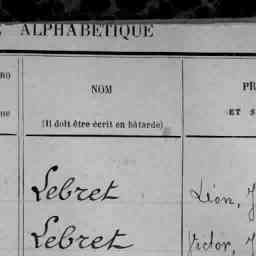 ALPHABÉTIQUE
NOM
(Il doit être écrit en bâtarde)
ET
Lebret Léon, J
Lebret Victor, J